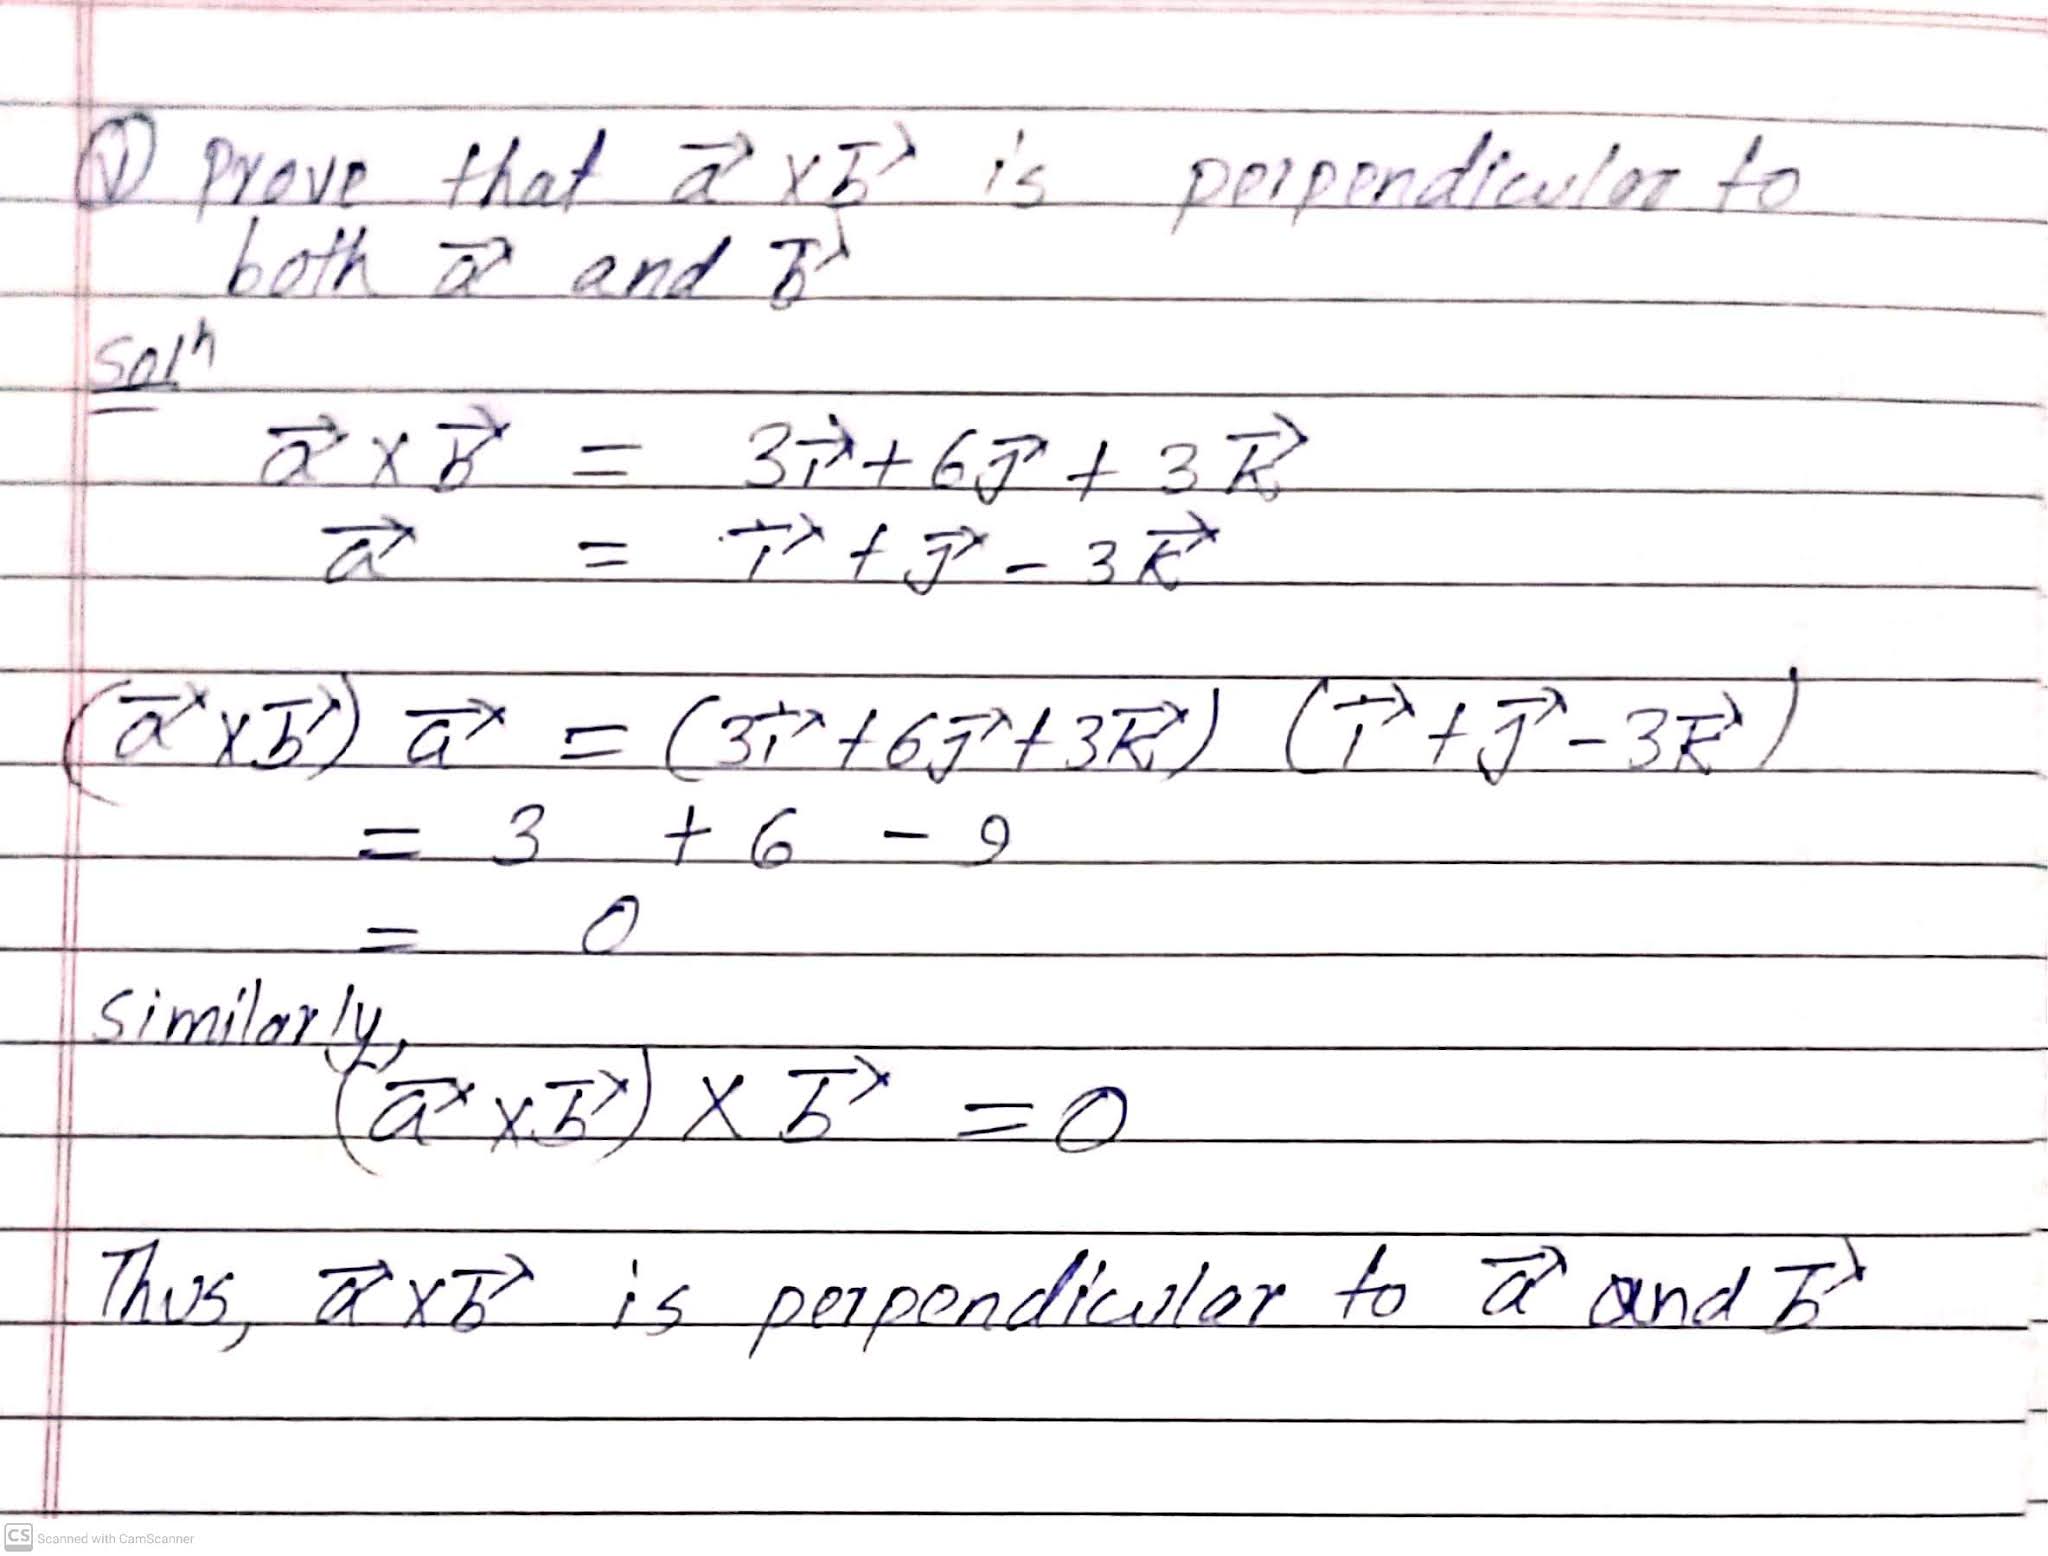 ① Prove that a⃗ × b⃗ is perpendicular to
both a⃗ and b⃗
Solⁿ
a⃗ × b⃗ = 3i⃗ + 6j⃗ + 3k⃗
a⃗ = i⃗ + j⃗ - 3k⃗
(a⃗ × b⃗) a⃗ = (3i⃗ + 6j⃗ + 3k⃗) (i⃗ + j⃗ - 3k⃗)
= 3 + 6 - 9
= 0
Similarly,
(a⃗ × b⃗) × b⃗ = 0
Thus, a⃗ × b⃗ is perpendicular to a⃗ and b⃗
CS Scanned with CamScanner